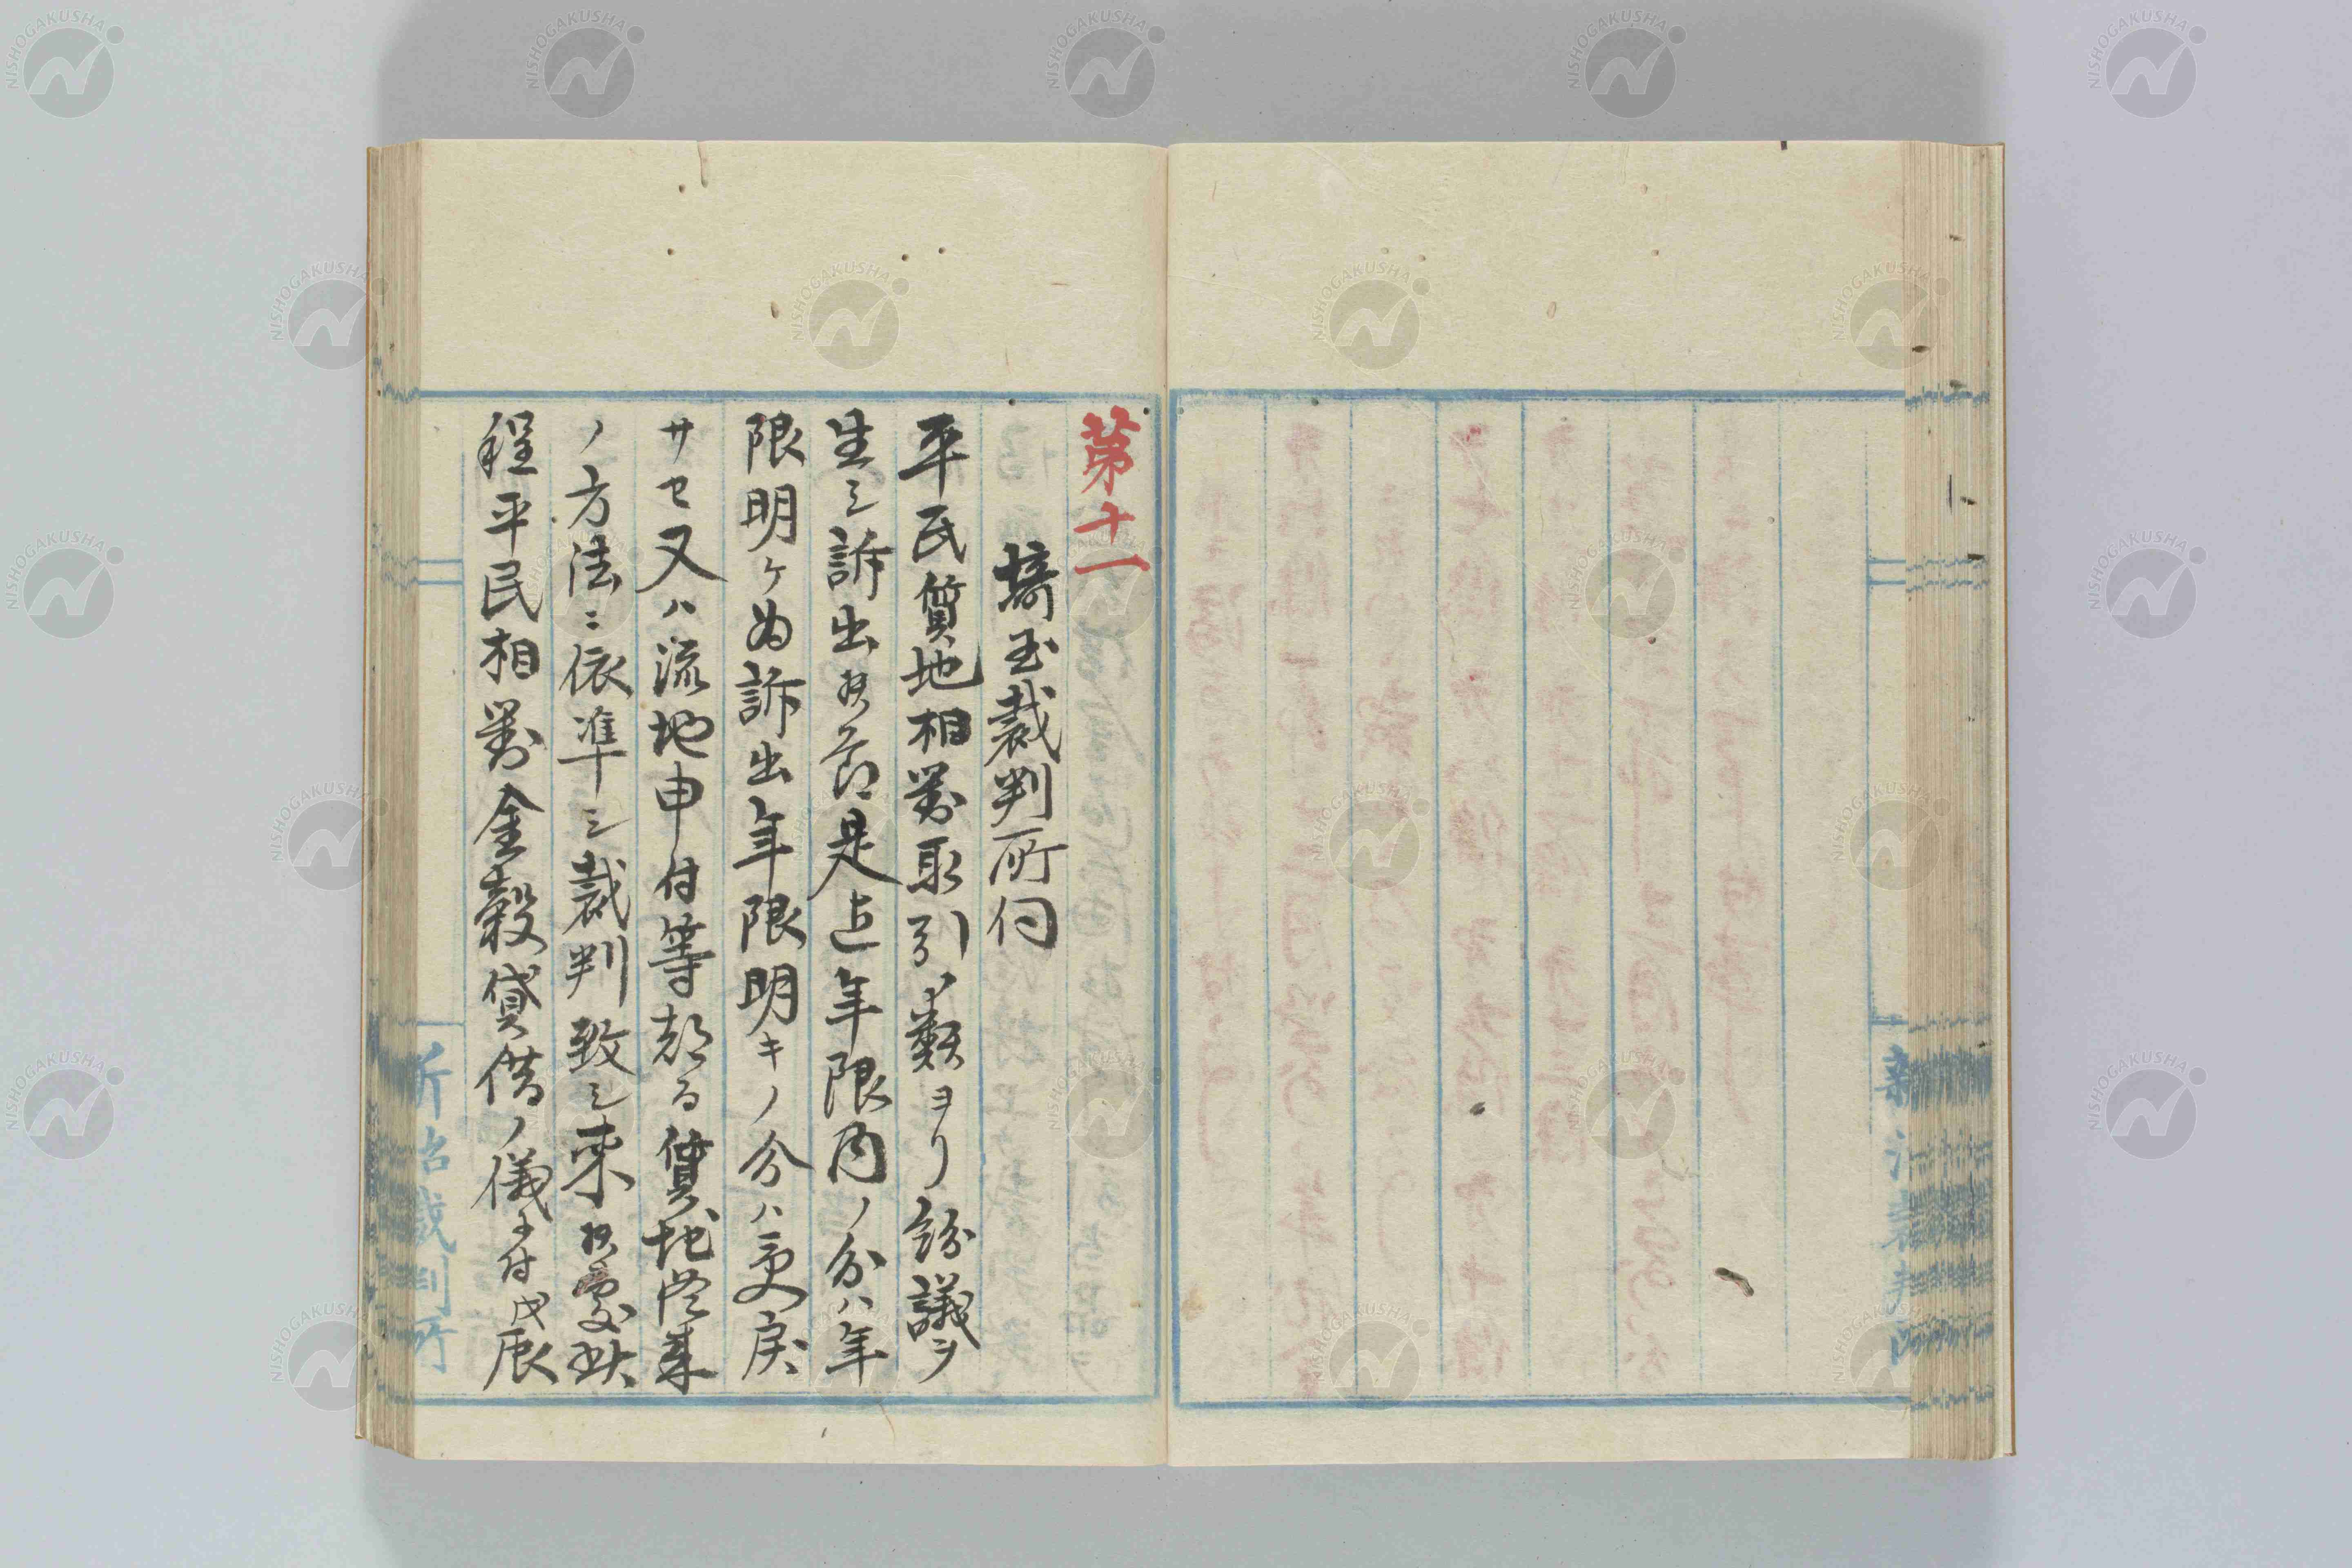 第十一
埼玉裁判所伺
平民質地相對取引ノ類ヨリ紛議ヲ
生シ訴出候節是迄年限内ノ分ハ年
限明ケ為訴出年限明キノ分ハ受戻
サセ又ハ流地申付等都る質地従来
ノ方法ニ依準シ裁判致シ来候處此
程平民相對金穀貸借ノ儀ニ付戊辰
新治裁判所
NISHOGAKUSHA